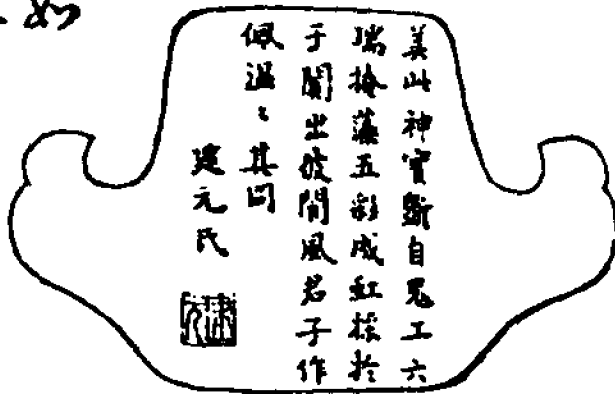 美此神寶斲自鬼工六
瑞掩藻五彩成虹採於
于闐出彼閬風君子作
佩溫〻其同
建元氏
如